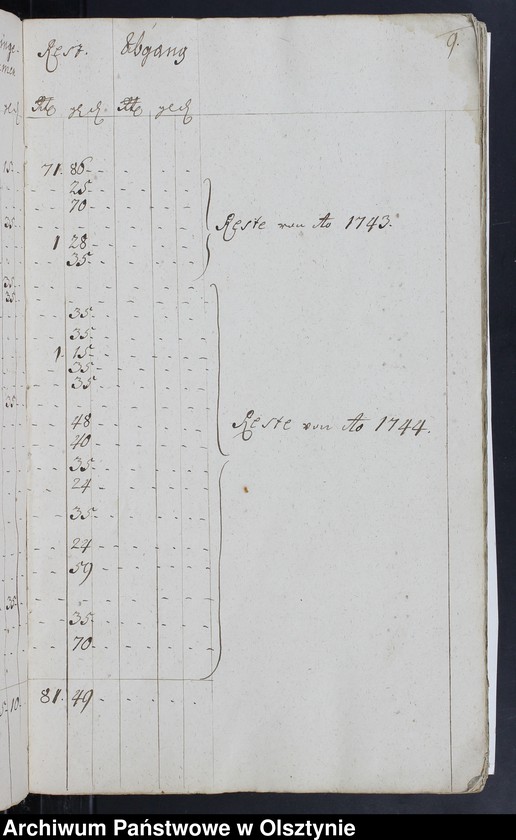 9.
Rest. Abgang
rt gr d rt gr d
71. 86 - - - -
- 25 - - - -
- 70 - - - -
- - - - -
Reste von Ao 1743.
1 28 - - - -
- 35 - - - -
- - - - -
- 35 - - - -
- 35 - - - -
1. 15 - - - -
- 35 - - - -
- 35 - - - -
- - - - -
- 48 - - - -
Reste von Ao 1744.
- 40 - - - -
- 35 - - - -
- 24 - - - -
- 35 - - - -
- 24 - - - -
- 59 - - - -
- - - - -
- 35 - - - -
- 70 - - - -
81. 49 - - - -
Archiwum Państwowe w Olsztynie